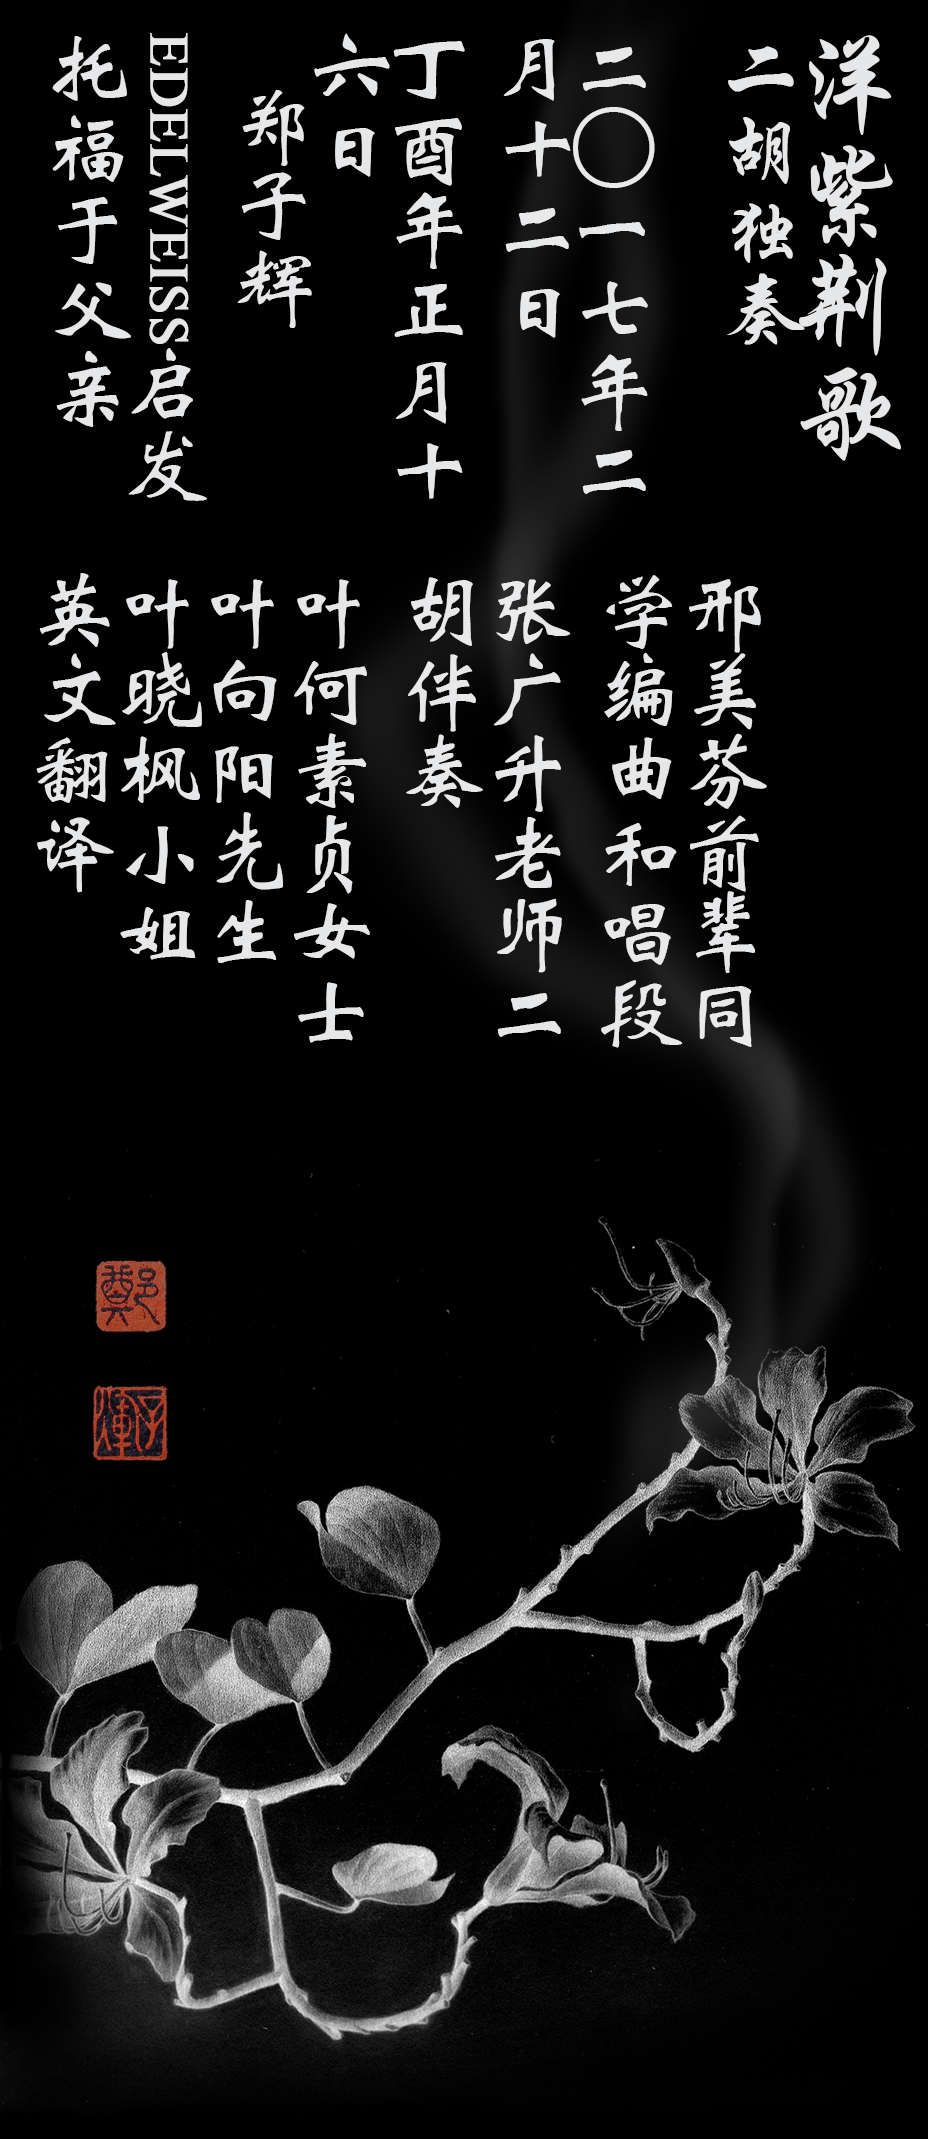 洋紫荆歌
二胡独奏
二〇一七年二
月十二日
丁酉年正月十
六日
郑子辉
EDELWEISS启发
托福于父亲
邢美芬前辈同
学编曲和唱段
张广升老师二
胡伴奏
叶何素贞女士
叶向阳先生
叶晓枫小姐
英文翻译
鄭
子輝